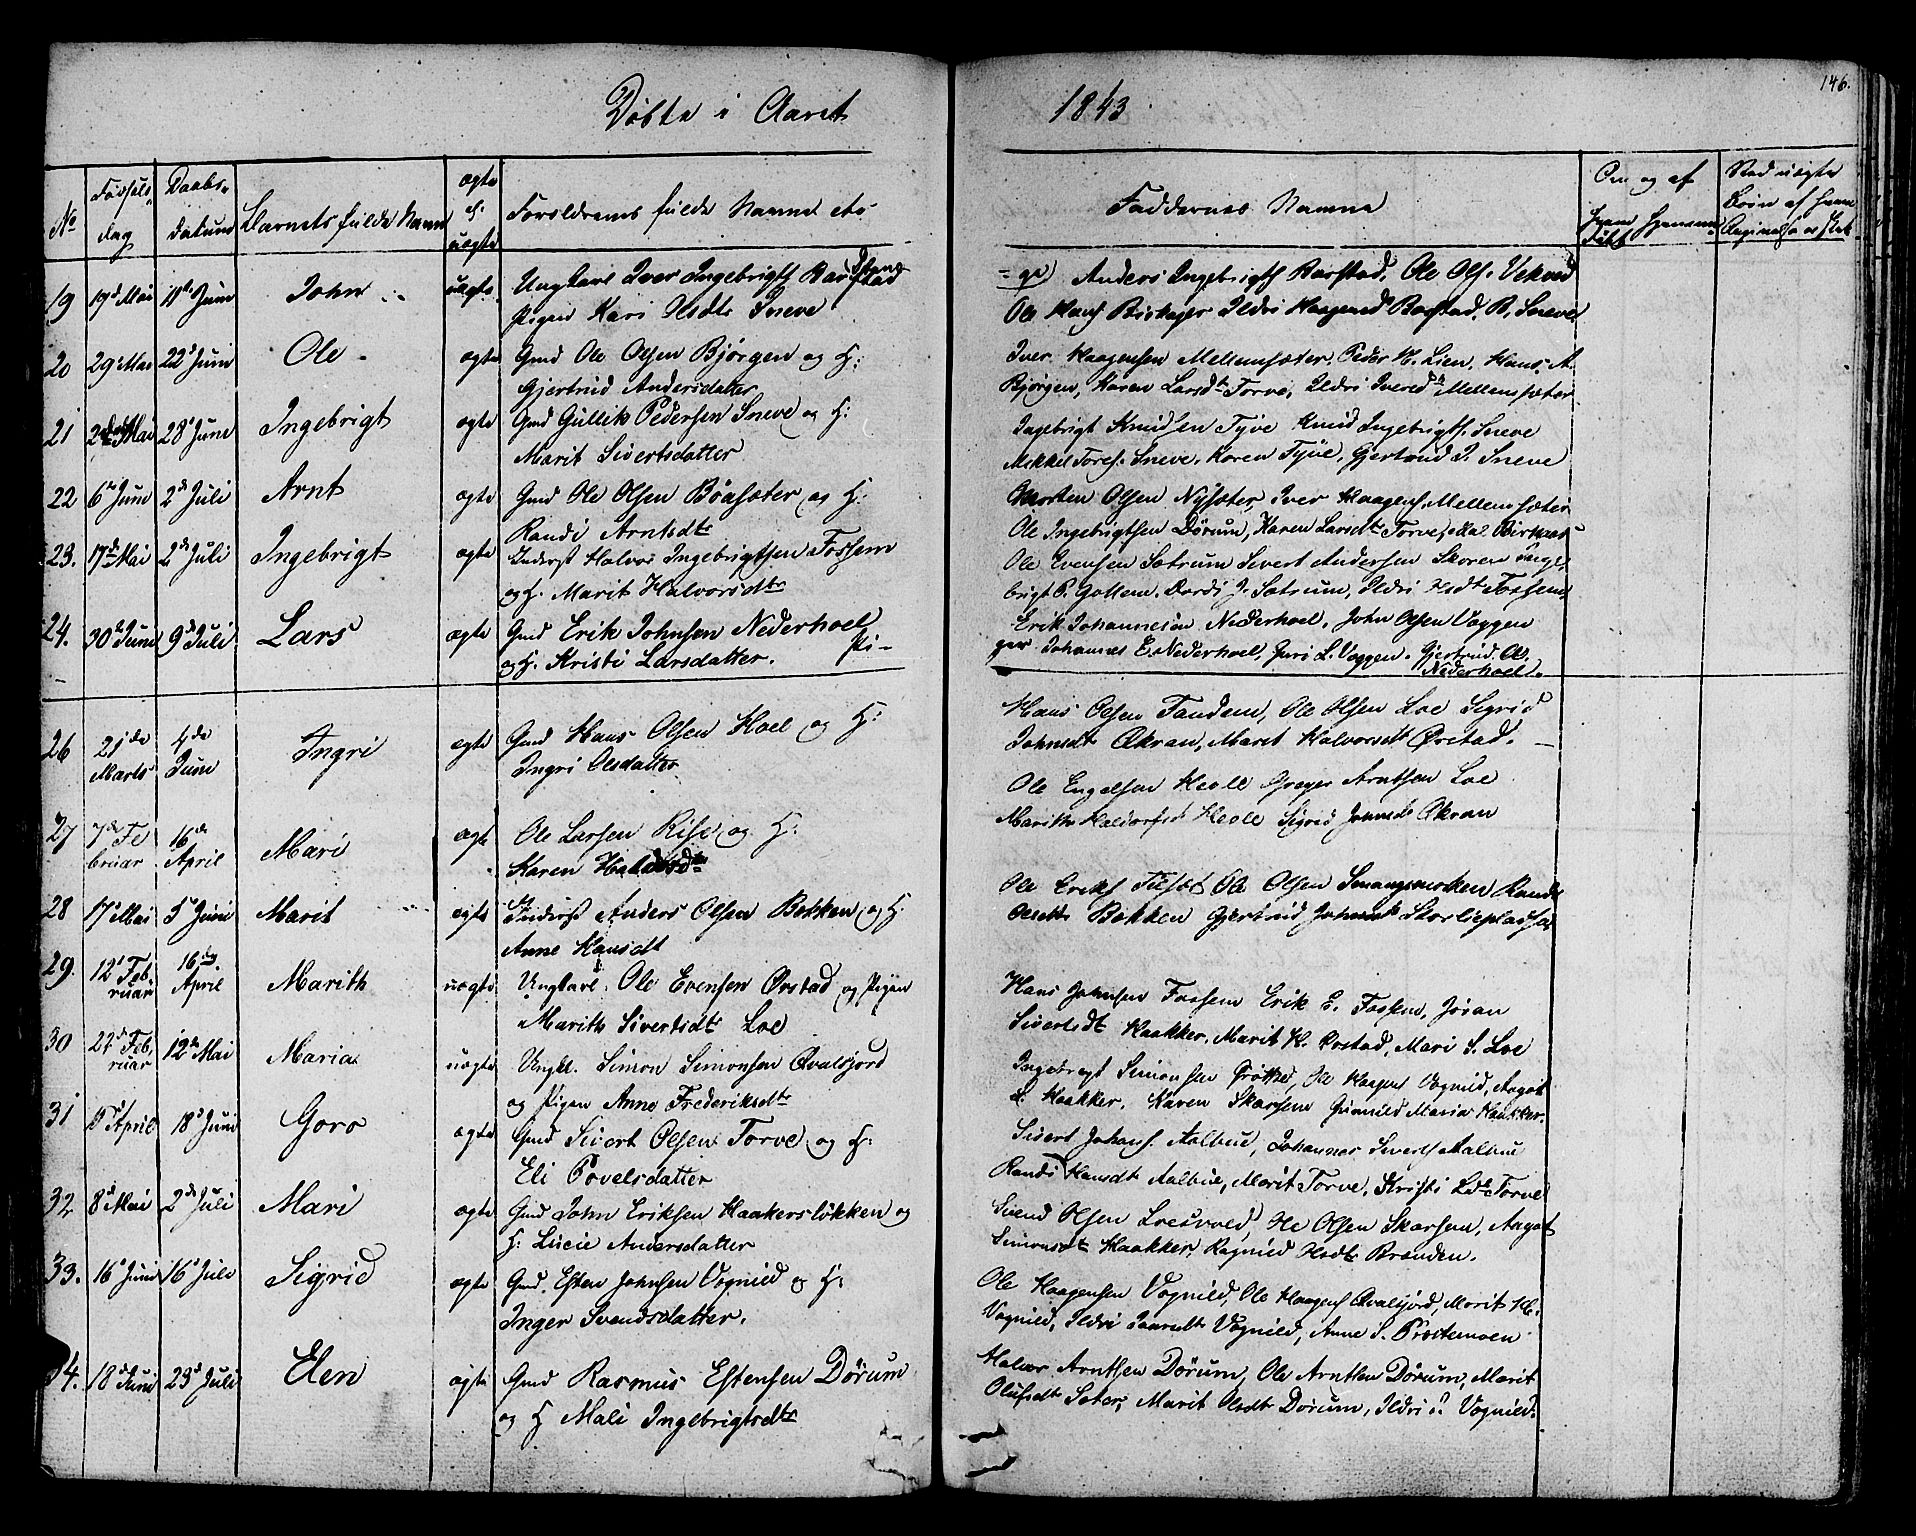 146.
Döbte i Aaret 1843
No
Fødsels dag
Daabs datum
Barnets fulde Navn
ægte el. uægte
Forældrenes fulde Navne etc
Faddernes Navne
19 19d Mai 11te Juni John uægte Ungkarl Iver Ingebrigts. Barstad
Pigen Kari Olsdtr Sneve
Anders Ingebrigts Barstad, Ole Ols. Vekved
Ole Hans. Birkager Ildri Haagensd Barstad. B. Sneve
20 29 Mai 22d Juni Ole ægte Gmd Ole Olsen Bjørgen og H:
Gjertrud Andersdatter
Iver Haagensen Mellemsæter, Peder H. Lien, Hans. A.
Bjørgen, Karen Larsdtr Torve, Ildri Iversdtr Mellemsæter
21 Mai 28d June Ingebrigt ægte Gmd Gullik Pedersen Sneve og H:
Marit Sivertsdatter
Ingebrigt Knudsen Tyve Knud Ingebrigts. Sneve
Mikkel Tores. Sneve, Karen Tyve, Gjertrud I. Sneve
22 6te Juni 2d Juli Arnt ægte Gmd Ole Olsen Böasæter og H:
Randi Arntsdtr
Morten Olsen Nysæter, Iver Haagens. Mellemsæter
Ole Ingebrigtsen Dørum, Karen Larsdtr Torve,
23. 17de Mai 2de Juli Ingebrigt ægte Inderst Halvor Ingebrigtsen Fossem
og H. Marit Halvorsdtr
Ole Evensen Sætrum Sivert Andersen Skoren Inge-
brigt P. Gollem. Dordi J. Sætrum, Ildri Hsdt Fossem
24. 30d Juni 9d Juli Lars ægte Gmd Erik Johnsen Nederhoel
og H. Kristi Larsdatter. Pi-
Erik Johannesen Nederhoel, John Olsen Vaggen
ger Johannes E. Nederhoel, Guri L. Vaggen. Gjertrud Ol.
Nederhoel.
26 21de Marts 4de Juni Ingri ægte Gmd Hans Olsen Hoel og H:
Ingri Olsdatter
Hans Olsen Tandem, Ole Olsen Loe Sigrid
Johnsdt Ækran, Marit Halvorsdt Ørstad.
27 7de Februar 16de April Mari ægte Ole Larsen Rise og H:
Karen
Ole Engelsen Hevle Greger Arntsen Loe
Marith Haldorsd Hevle Sigrid Johnsdt Ækran
28 17d Mai 5d Juni Marit ægte Inderst Anders Olsen Bekken og H.
Anne Hansdt
Ole Eriks Ole Olsen Randi
Olsdtr Bekken Gjertrud Johnsdt Skorliepladsen
29. 12d Februar 16de April Marith uægte Ungkarl. Ole Evensen Ørstad og Pigen
Marith Sivertsdt Loe
Hans Johnsen Fossem Erik E. Fossem, Jøran
Sivertsdt Haakker, Marit H. Ørstad, Mari S. Loe
30 22d Februar 12te Mai Maria uægte Ungk. Simon Simonsen Qvalsjord
og Pigen Anne Frederiksdtr
Ingebregt Simonsen Grøtte, Ole Haagens Vognild, Aagot
S. Haakker, Karen Skarsem Gunnild Maria Haakker.
31 5d April 18d Juni Goro ægte Gmd Sivert Olsen Torve og H:
Eli Povelsdatter
Sivert Johans. Aalbue, Johannes Siverts Aalbue
Randi Hansdt Aalbue, Marit Torve, Kristi Ldtr Torve
32 8d Mai 2de Juli Mari ægte Gmd John Eriksen Haakersløkken og
H: Lucie Andersdatter
Svend Olsen Løesvold, Ole Olsen Skarsem, Aagot
Simonsdt Haakker, Ragnild Hsdtr Branden.
33. 16d Juni 16d Juli Sigrid ægte Gmd. Esten Johnsen Vognild og H:
Inger Svendsdatter.
Ole Haagensen Vognild, Ole Haagens Qvalsjord, Marit H.
Vognild, Ildri Iversdt Vognild, Anne S. Prestemoen
34. 18d Juni 23d Juli Elen ægte Gmd Rasmus Estensen Dørum
og H Mali Ingebrigtsdtr
Halvor Arntsen Dørum, Ole Arntsen Dørum, Marit
Olufsdt Sæter, Marit Olsdt Dørum, Ildri J. Vognild.